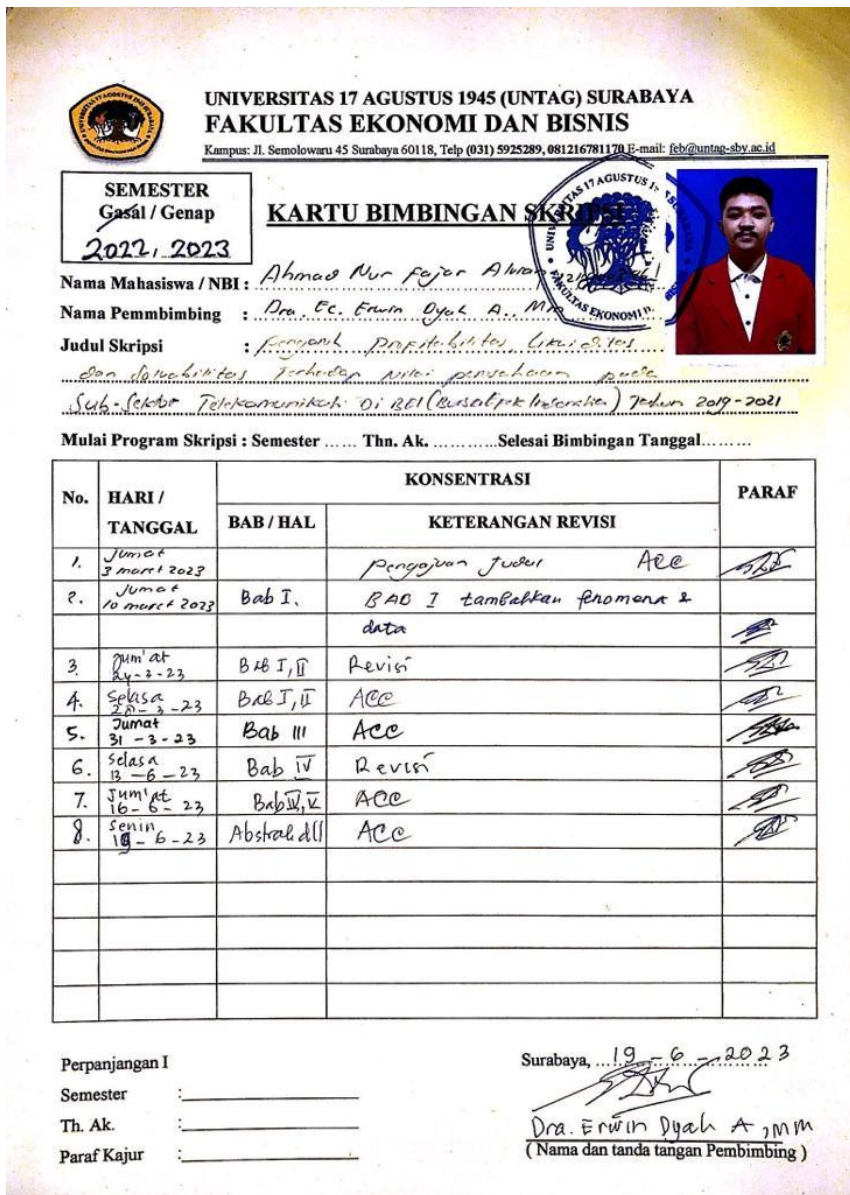 UNIVERSITAS 17 AGUSTUS 1945 (UNTAG) SURABAYA
FAKULTAS EKONOMI DAN BISNIS
Kampus: Jl. Semolowaru 45 Surabaya 60118, Telp (031) 5925289, 081216781170 E-mail: feb@untag-sby.ac.id
SEMESTER
Gasal / Genap
2022, 2023
KARTU BIMBINGAN SKRIPSI
Nama Mahasiswa / NBI : Ahmad Nur Fajar
Nama Pemmbimbing : Dra. Ec. Erwin Dyah A., MM
Judul Skripsi : Pengaruh Profitabilitas Likuiditas
dan Solvabilitas Terhadap Nilai perusahaan pada
Sub-Sektor Telekomunikasi Di BEI (Bursa Efek Indonesia) Tahun 2019-2021
Mulai Program Skripsi : Semester ...... Thn. Ak. ............Selesai Bimbingan Tanggal.........
No. HARI / TANGGAL KONSENTRASI PARAF
BAB / HAL KETERANGAN REVISI
1. Jumat 3 maret 2023 Pengajuan Judul ACC
2. Jumat 10 maret 2023 Bab I. BAB I tambahkan fenomena &
data
3. Jum'at 24-3-23 Bab I, II Revisi
4. Selasa 28-3-23 Bab I, II ACC
5. Jumat 31-3-23 Bab III ACC
6. Selasa 13-6-23 Bab IV Revisi
7. Jum'at 16-6-23 Bab IV, V ACC
8. Senin 19-6-23 Abstrak dll ACC
Perpanjangan I
Semester :
Th. Ak. :
Paraf Kajur :
Surabaya, 19-6-2023
Dra. Erwin Dyah A, MM
( Nama dan tanda tangan Pembimbing )